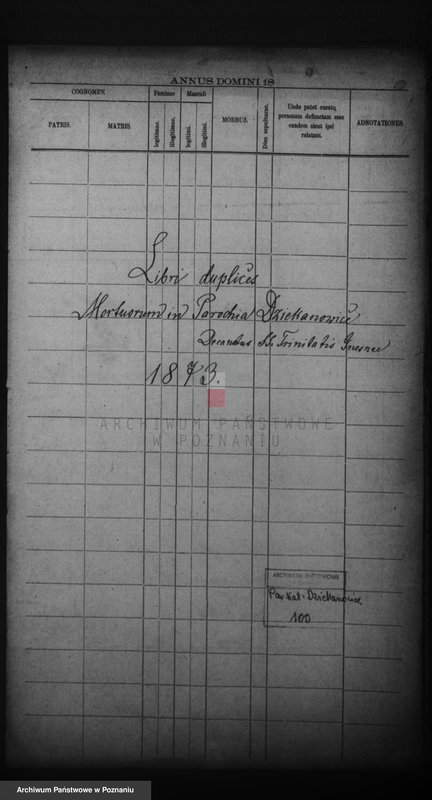 ANNUS DOMINI 18
COGNOMEN
Feminae
Masculi
PATRIS.
MATRIS.
legitimae.
illegitimae.
legitimi.
illegitimi.
MORBUS.
Dies sepulturae.
Unde patet curato,
personam defunctam esse
eandem sicut ipsi
relatum.
ADNOTATIONES.
Libri duplices
Mortuorum in Parochia Dziekanowice
Decanatus SS. Trinitatis Gnesnae
1873.
ARCHIWUM PAŃSTWOWE
W POZNANIU
ARCHIWUM PAŃSTWOWE
Par. Kat. Dziekanowice
100
Archiwum Państwowe w Poznaniu